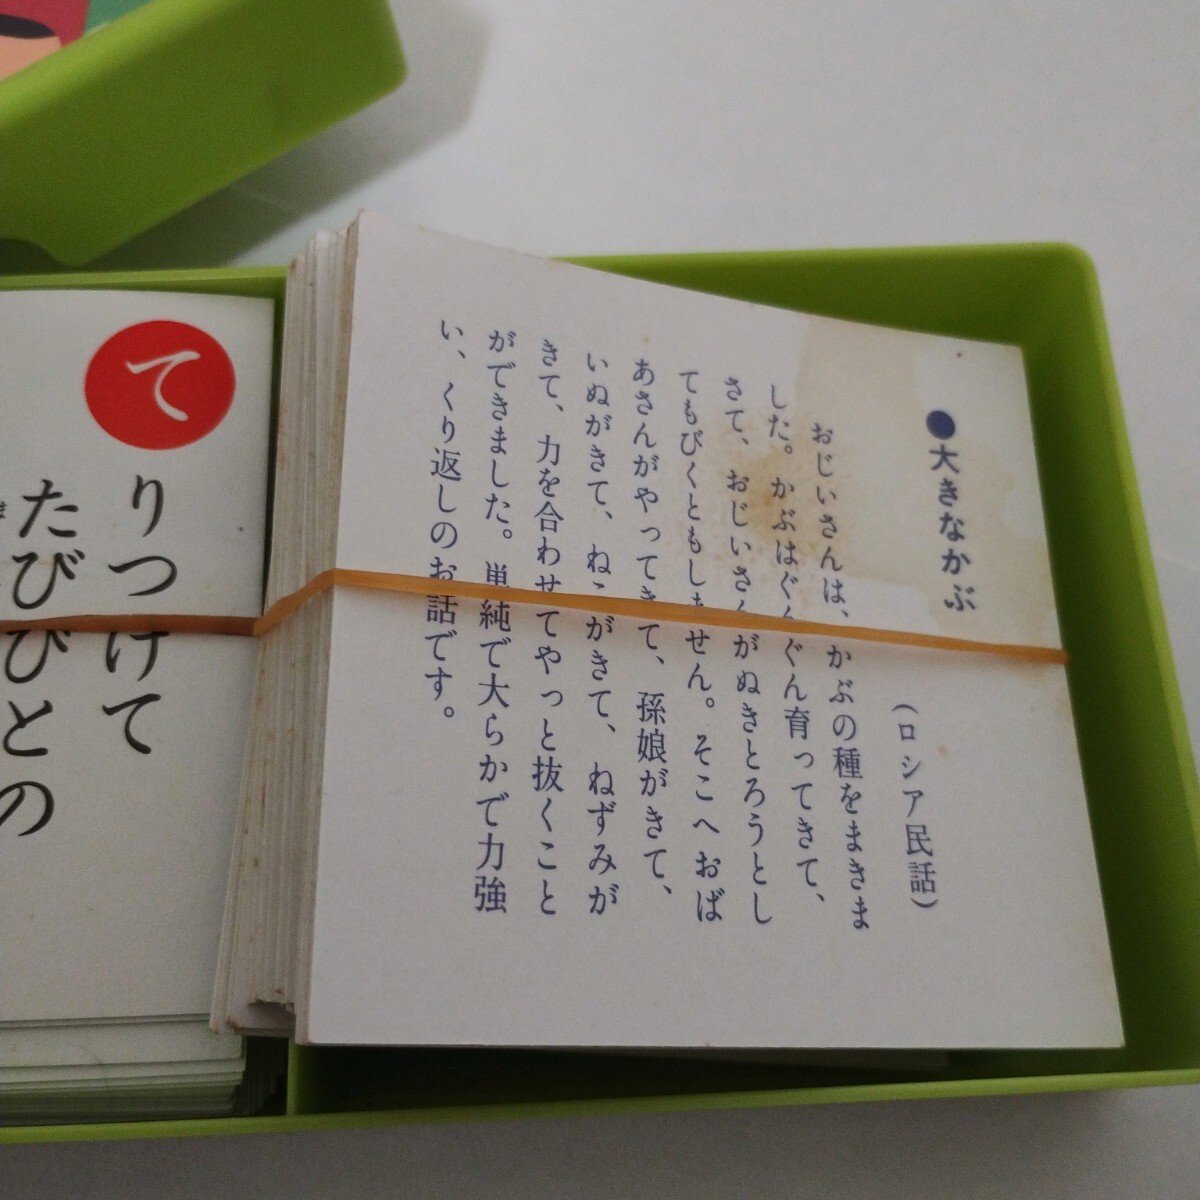 ●大きなかぶ
(ロシア民話)
おじいさんは、かぶの種をまきま
した。かぶはぐんぐん育ってきて、
さて、おじいさんがぬきとろうとし
てもびくともしません。そこへおば
あさんがやってきて、孫娘がきて、
いぬがきて、ねこがきて、ねずみが
きて、力を合わせてやっと抜くこと
ができました。単純で大らかで力強
い、くり返しのお話です。
て
りつけて
たびびとの